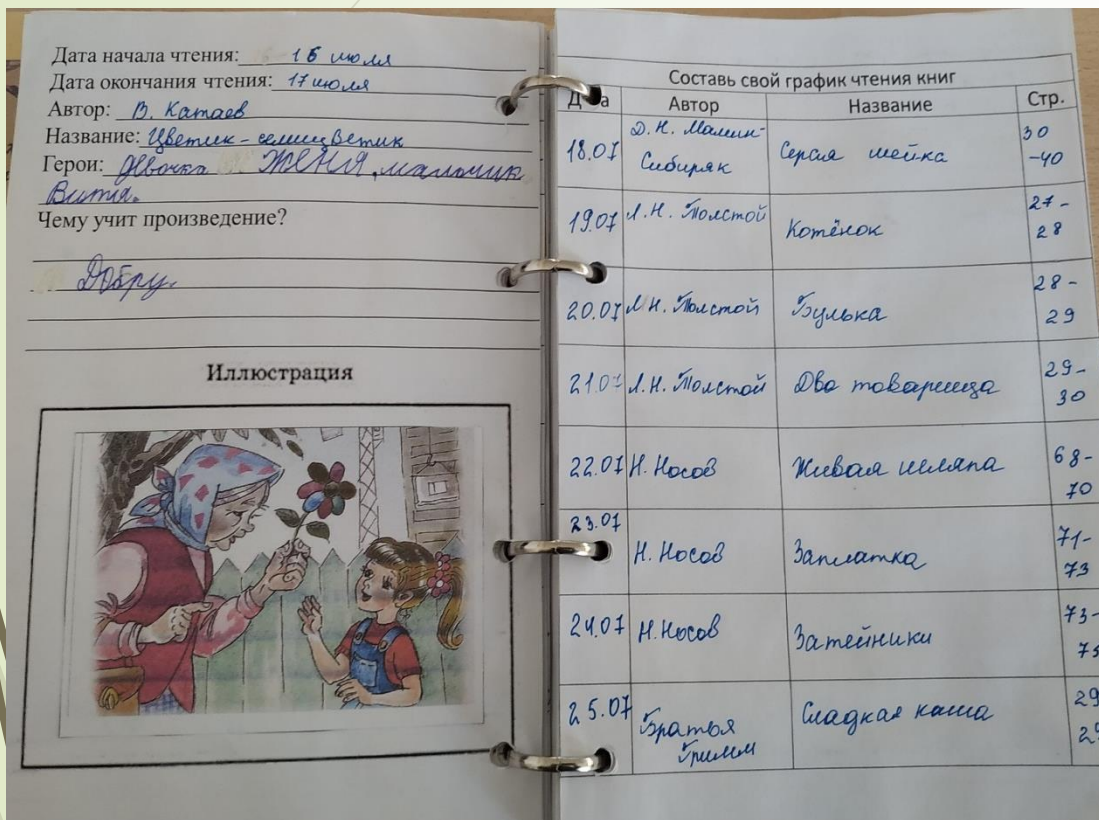 Дата начала чтения: 16 июля
Дата окончания чтения: 17 июля
Автор: В. Катаев
Название: Цветик-семицветик
Герои: девочка ЖЕНЯ, мальчик
Витя.
Чему учит произведение?
Добру.
Иллюстрация
Составь свой график чтения книг
Автор Название Стр.
18.07 Д.Н. Мамин-Сибиряк Серая шейка 30-40
19.07 Л.Н. Толстой Котёнок 27-28
20.07 Л.Н. Толстой Булька 28-29
21.07 Л.Н. Толстой Два товарища 29-30
22.07 Н. Носов Живая шляпа 68-70
23.07 Н. Носов Заплатка 71-73
24.07 Н. Носов Затейники 73-75
25.07 Братья Гримм Сладкая каша